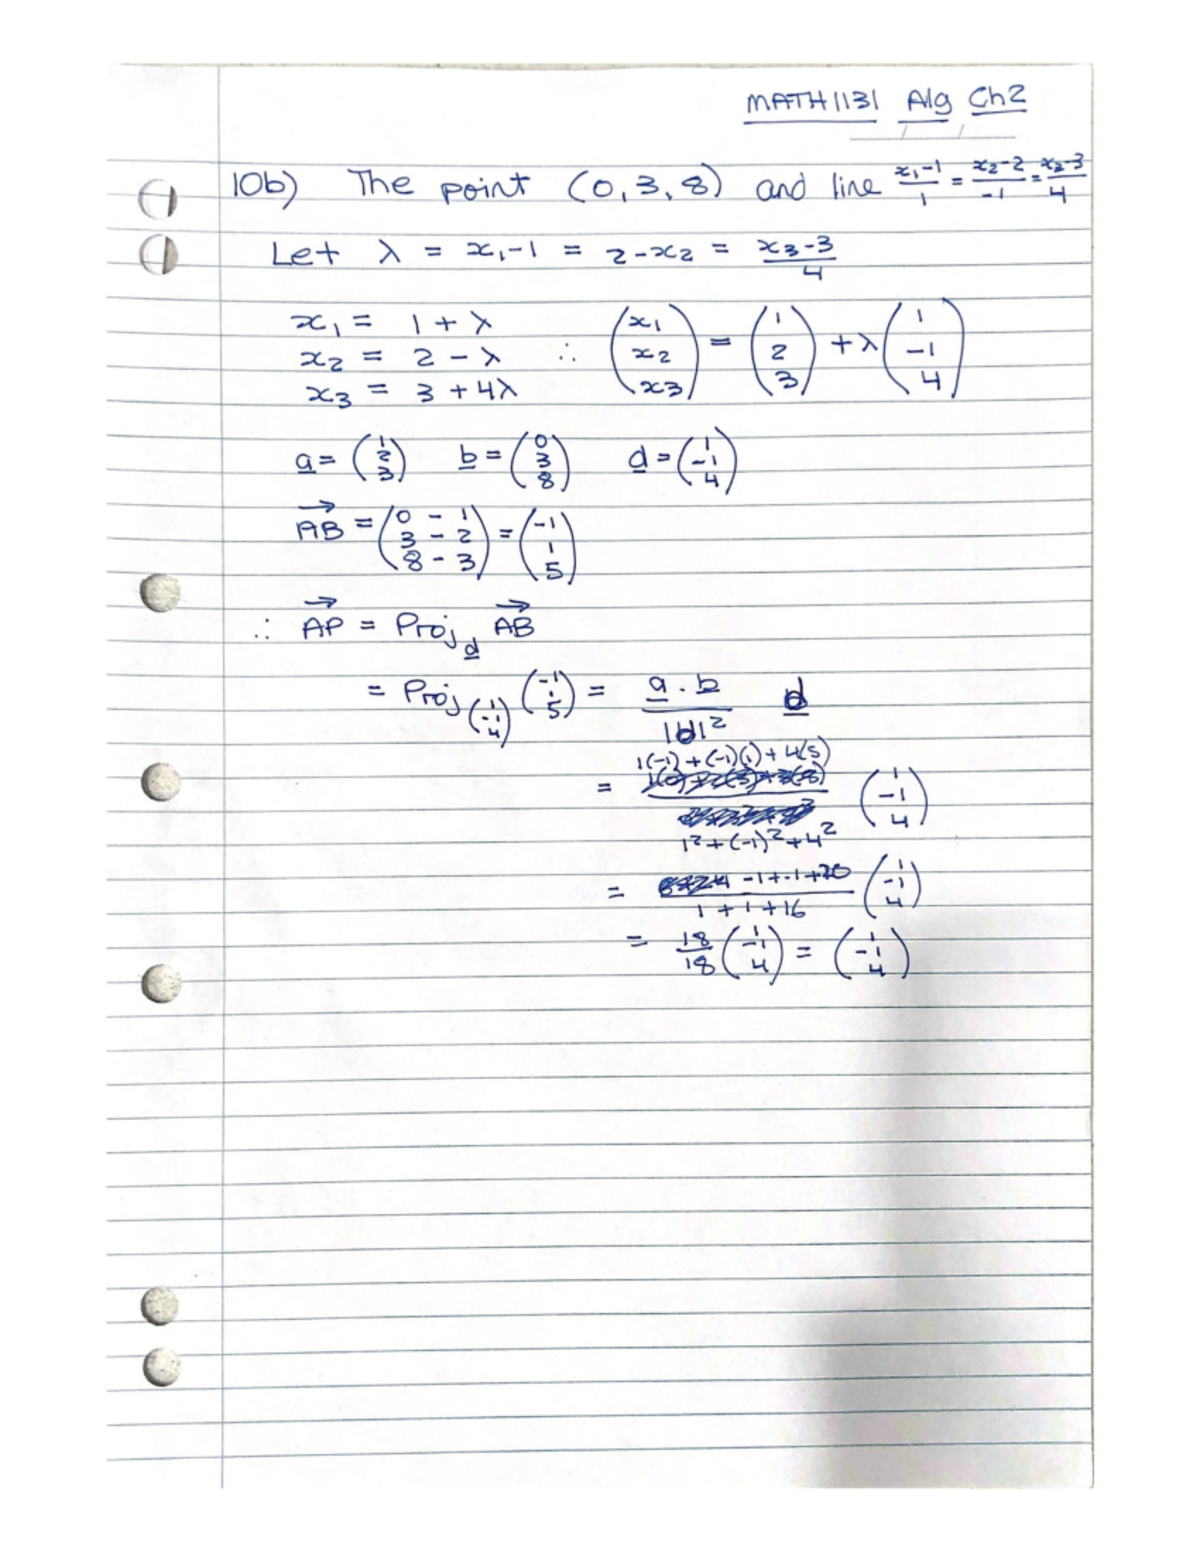 MATH1131 Alg Ch2
10b) The point (0, 3, 8) and line (x₁-1)/1 = (x₂-2)/-1 = (x₃-3)/4
Let λ = x₁-1 = 2-x₂ = (x₃-3)/4
x₁ = 1 + λ
x₂ = 2 - λ ∴ (x₁ x₂ x₃) = (1 2 3) + λ(1 -1 4)
x₃ = 3 + 4λ
a = (1 2 3) b = (0 3 8) d = (1 -1 4)
AB = (0 - 1 3 - 2 8 - 3) = (-1 1 5)
∴ AP = Proj_d AB
= Proj_(1 -1 4) (-1 1 5) = (a . b)/|d|² d
= (1(-1) + (-1)(1) + 4(5))/(1² + (-1)² + 4²) (1 -1 4)
= (-1 + -1 + 20)/(1 + 1 + 16) (1 -1 4)
= 18/18 (1 -1 4) = (1 -1 4)